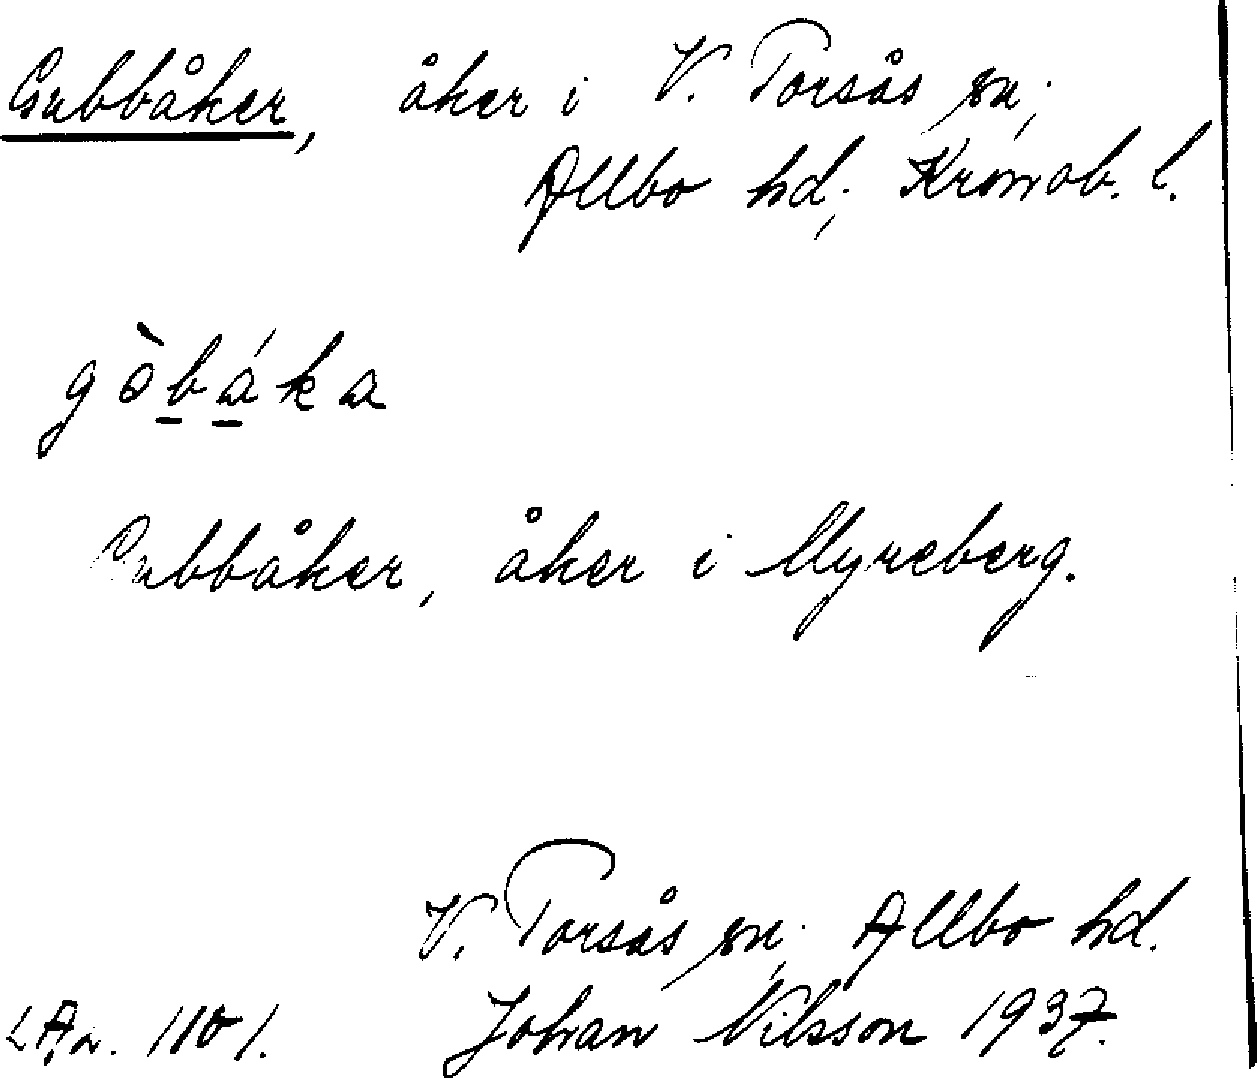 Gubbåker, åker i V. Torsås sn;
Allbo hd; Kronob. l.
gòbáka
Gubbåker, åker i Myreberg.
V. Torsås sn; Allbo hd.
Johan Nilsson 1937.